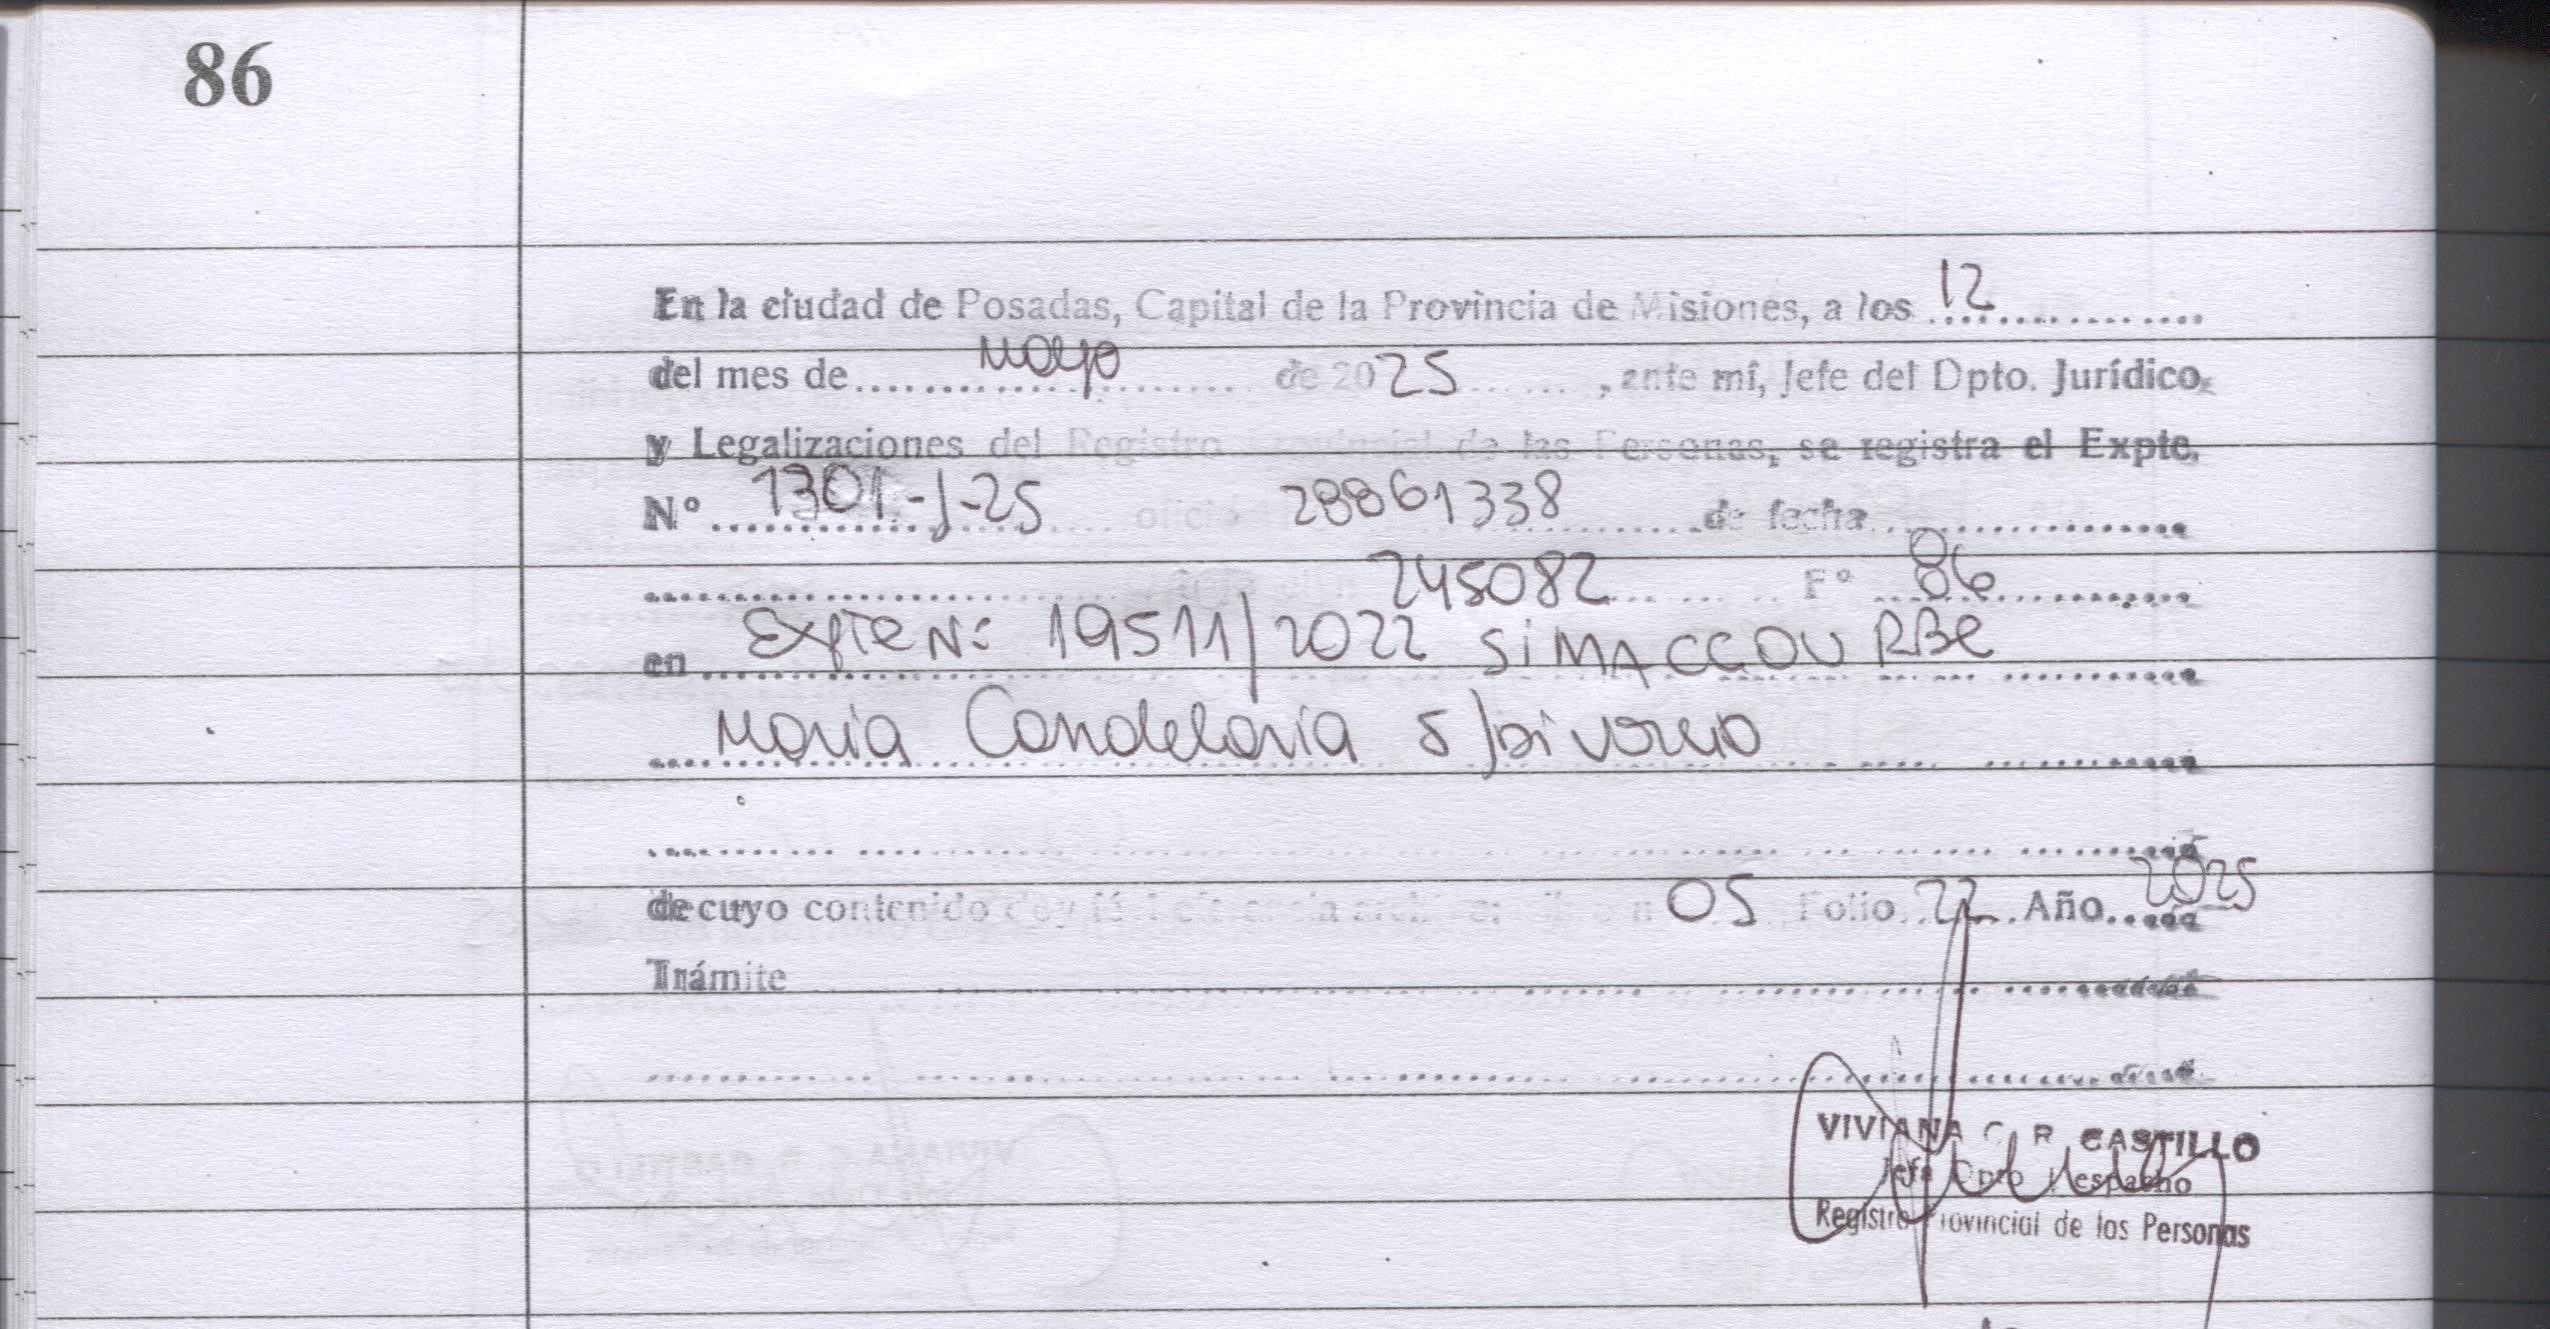 86
En la ciudad de Posadas, Capital de la Provincia de Misiones, a los 12
del mes de mayo de 2025, ante mí, Jefe del Dpto. Jurídico
y Legalizaciones del Registro Provincial de las Personas, se registra el Expte.
Nº 1301-J-25 oficio 28861338 de fecha
245082 Fº 86
en Expte Nº 19511/2022
Maria Candelaria s/Divorcio
de cuyo contenido doy fé 05 Folio 22 Año 2025
Trámite
VIVIANA C. R. CASTILLO
Jefa Dpto Despacho
Registro Provincial de las Personas